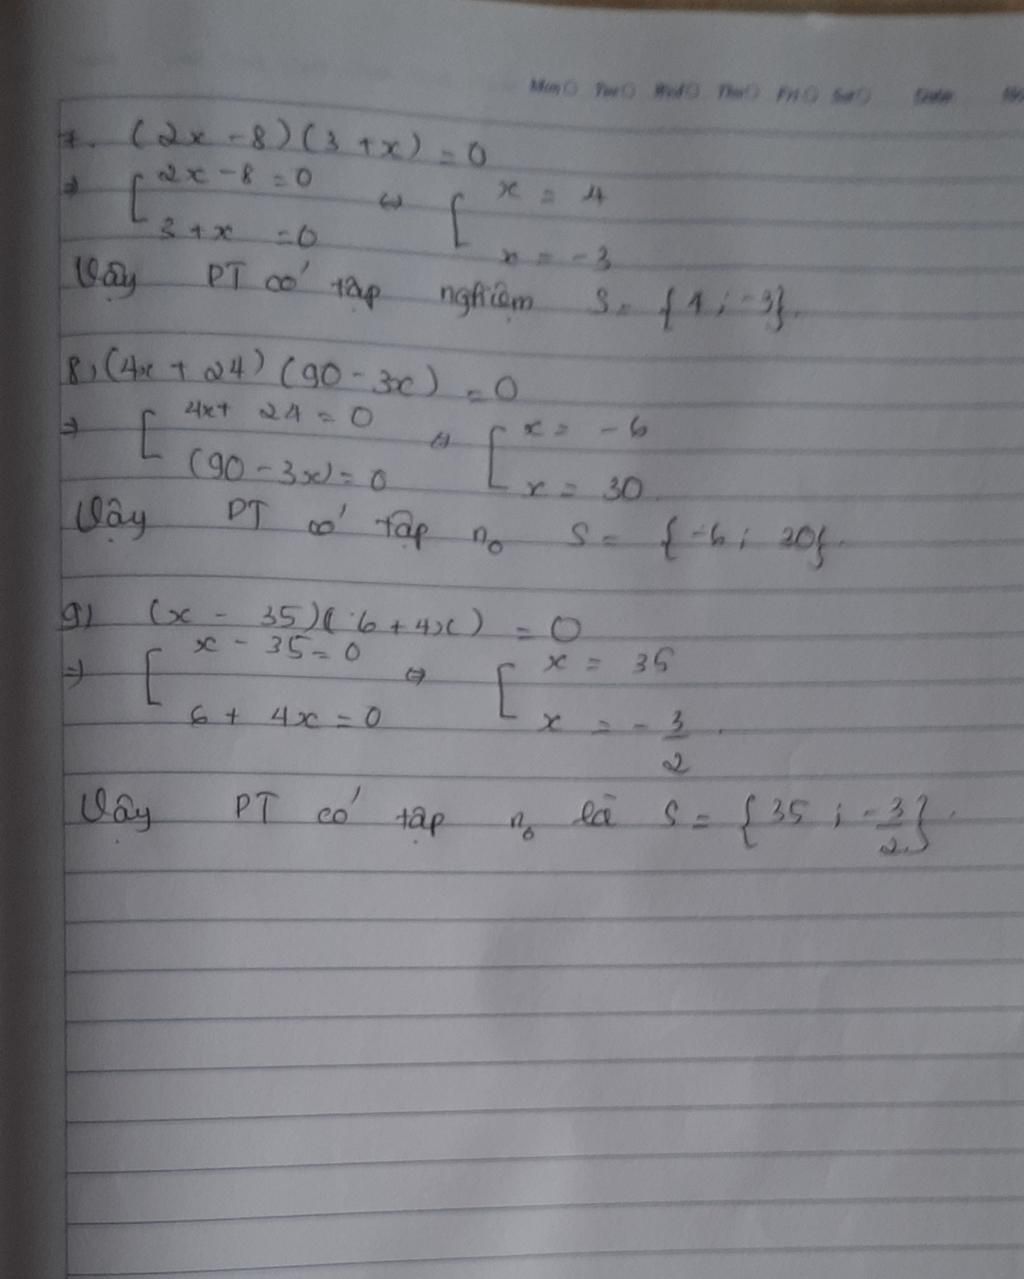 Mon Tue Wed Thu Fri Sat Sunday
7. (2x - 8)(3 + x) = 0
⇒ [ 2x - 8 = 0 ⇔ [ x = 4
3 + x = 0 x = -3
Vậy PT có tập nghiệm S = {4; -3}.
8, (4x + 24)(90 - 3x) = 0
⇒ [ 4x + 24 = 0 ⇔ [ x = -6
(90 - 3x) = 0 x = 30.
Vậy PT có tập no S = {-6; 30}.
9) (x - 35)(6 + 4x) = 0
⇒ [ x - 35 = 0 ⇔ [ x = 35
6 + 4x = 0 x = -3/2.
Vậy PT có tập no là S = {35; -3/2}.